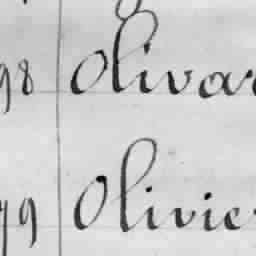 98 Olivar
99 Olivie